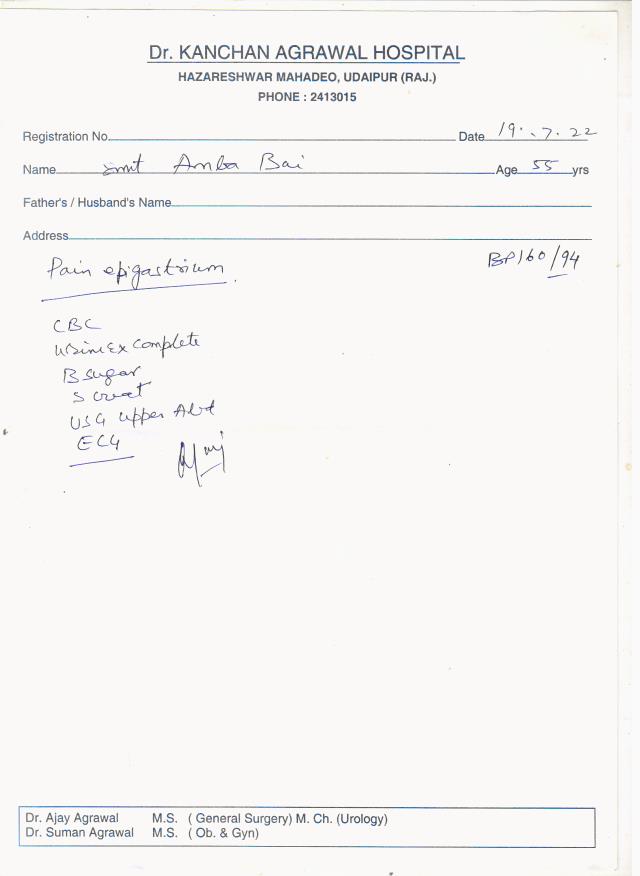 Dr. KANCHAN AGRAWAL HOSPITAL
HAZARESHWAR MAHADEO, UDAIPUR (RAJ.)
PHONE : 2413015
Registration No. Date 19.7.22
Name smt Amba Bai Age 55 yrs
Father's / Husband's Name
Address
BP 160/94
Pain epigastrium
CBC
Urine Ex complete
B sugar
S creat
USG upper Abd
ECG
Dr. Ajay Agrawal M.S. ( General Surgery) M. Ch. (Urology)
Dr. Suman Agrawal M.S. ( Ob. & Gyn)